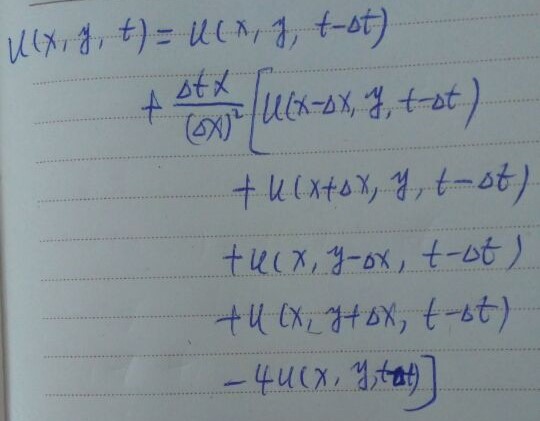 u(x, y, t) = u(x, y, t-Δt)
+ Δtα/(Δx)² [u(x-Δx, y, t-Δt)
+ u(x+Δx, y, t-Δt)
+ u(x, y-Δx, t-Δt)
+ u(x, y+Δx, t-Δt)
- 4u(x, y, t-Δt)]